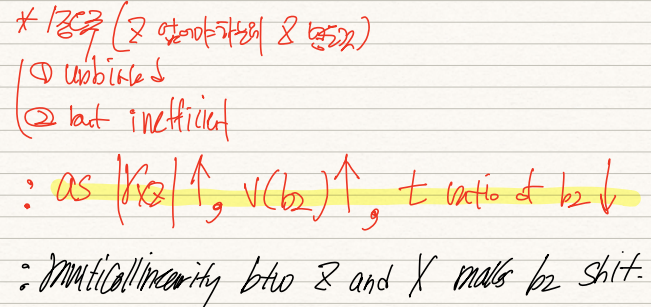 * 경우 (Z 없어야하는데 Z 있는)
① unbiased
② but inefficient
: as |rxz| ↑, V(b2) ↑, t ratio of b2 ↓
: multicollinearity btw Z and X makes b2 shit.